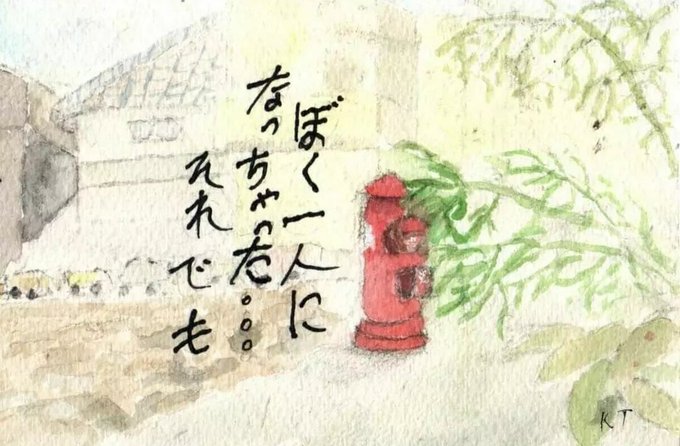 ぼく一人に
なっちゃった...。。。
それでも
KT